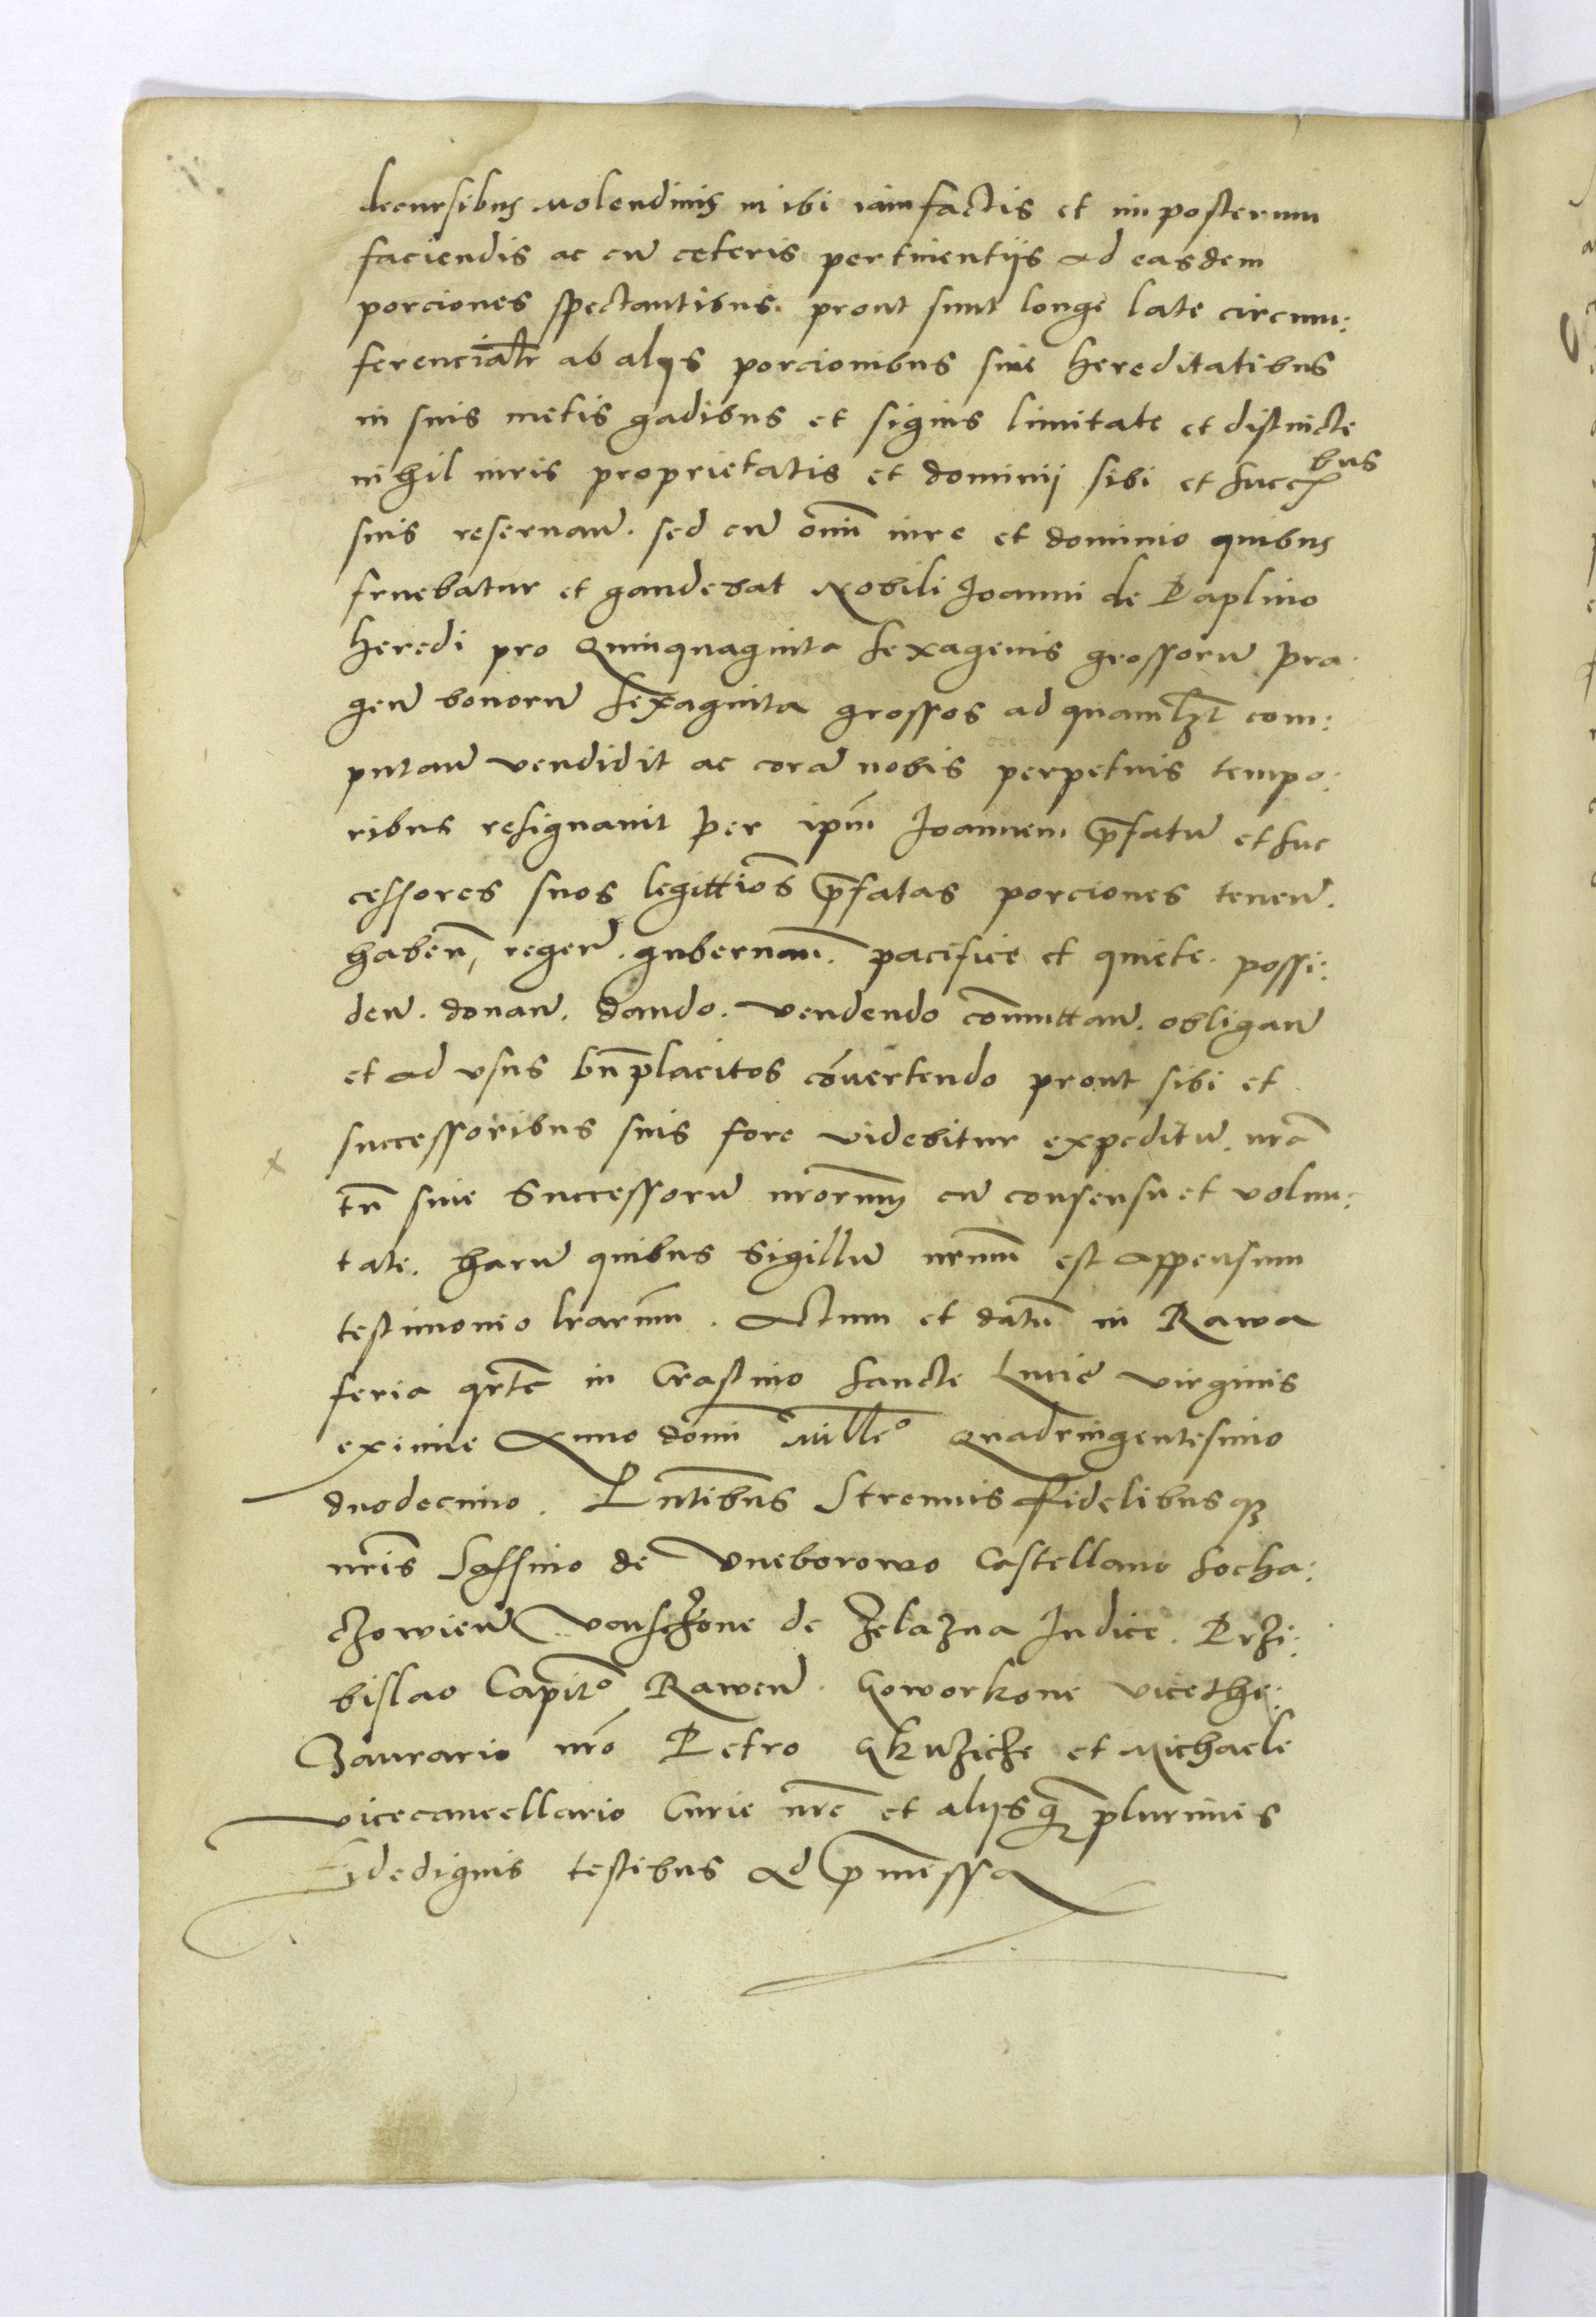 decursibus molendinis in ibi iam factis et imposterum
faciendis ac cũ ceteris pertinentijs ad easdem
porciones spectantibus. prout sunt longe late circum:
ferencialr̃ ab alijs porcionibus siue hereditatibus
in suis metis gadibus et signis limitate et distincte
nihil iuris proprietatis et dominij sibi et succ̃bus
suis reseruañ. sed cũ omĩ iure et dominio quibus
fruebatur et gaudebat Nobili Joanni de Paplino
heredi pro Quinquaginta sexagenis grossorũ pra
geñ bonorũ sexaginta grossos ad quamlꝫt com:
putañ vendidit ac corã nobis perpetuis tempo:
ribus resignauit per ipm̃ Joannem p̃fatũ et suc
cessores suos legittiõs p̃fatas porciones teneñ.
habeñ, regeñ. gubernañ. pacifice et quiete. possi:
deñ. donañ. dando. vendendo com̃uttañ. obligañ
et ad vsus bñplacitos cõuertendo prout sibi et
successoribus suis fore videbitur expeditũ. nrã
tñ siue Successorũ nrõrum cũ consensu et volun:
tate. harũ quibus Sigillũ nrũm est appensum
testimonio lr̃arum. Actum et datũ in Rawa
feria qrtã in Crastino sancte Lucie virginis
eximie Anno domĩ Mill̃o Quadringentesimo
duodecimo. Pñtibus Strenuis Fidelibusqꝫ
nrĩs Sassino de Vneborowo Castellano socha:
czowieñ. vanschone de Zelazna Judice. Przi:
bislao Capitõ Raweñ. Goworkone vicethe:
zaurario nrõ Petro Gkuziche et Michaele
vicecancellario Curie nrẽ et alijsqꝫ plurimis
Fidedignis testibus ad p̃missa